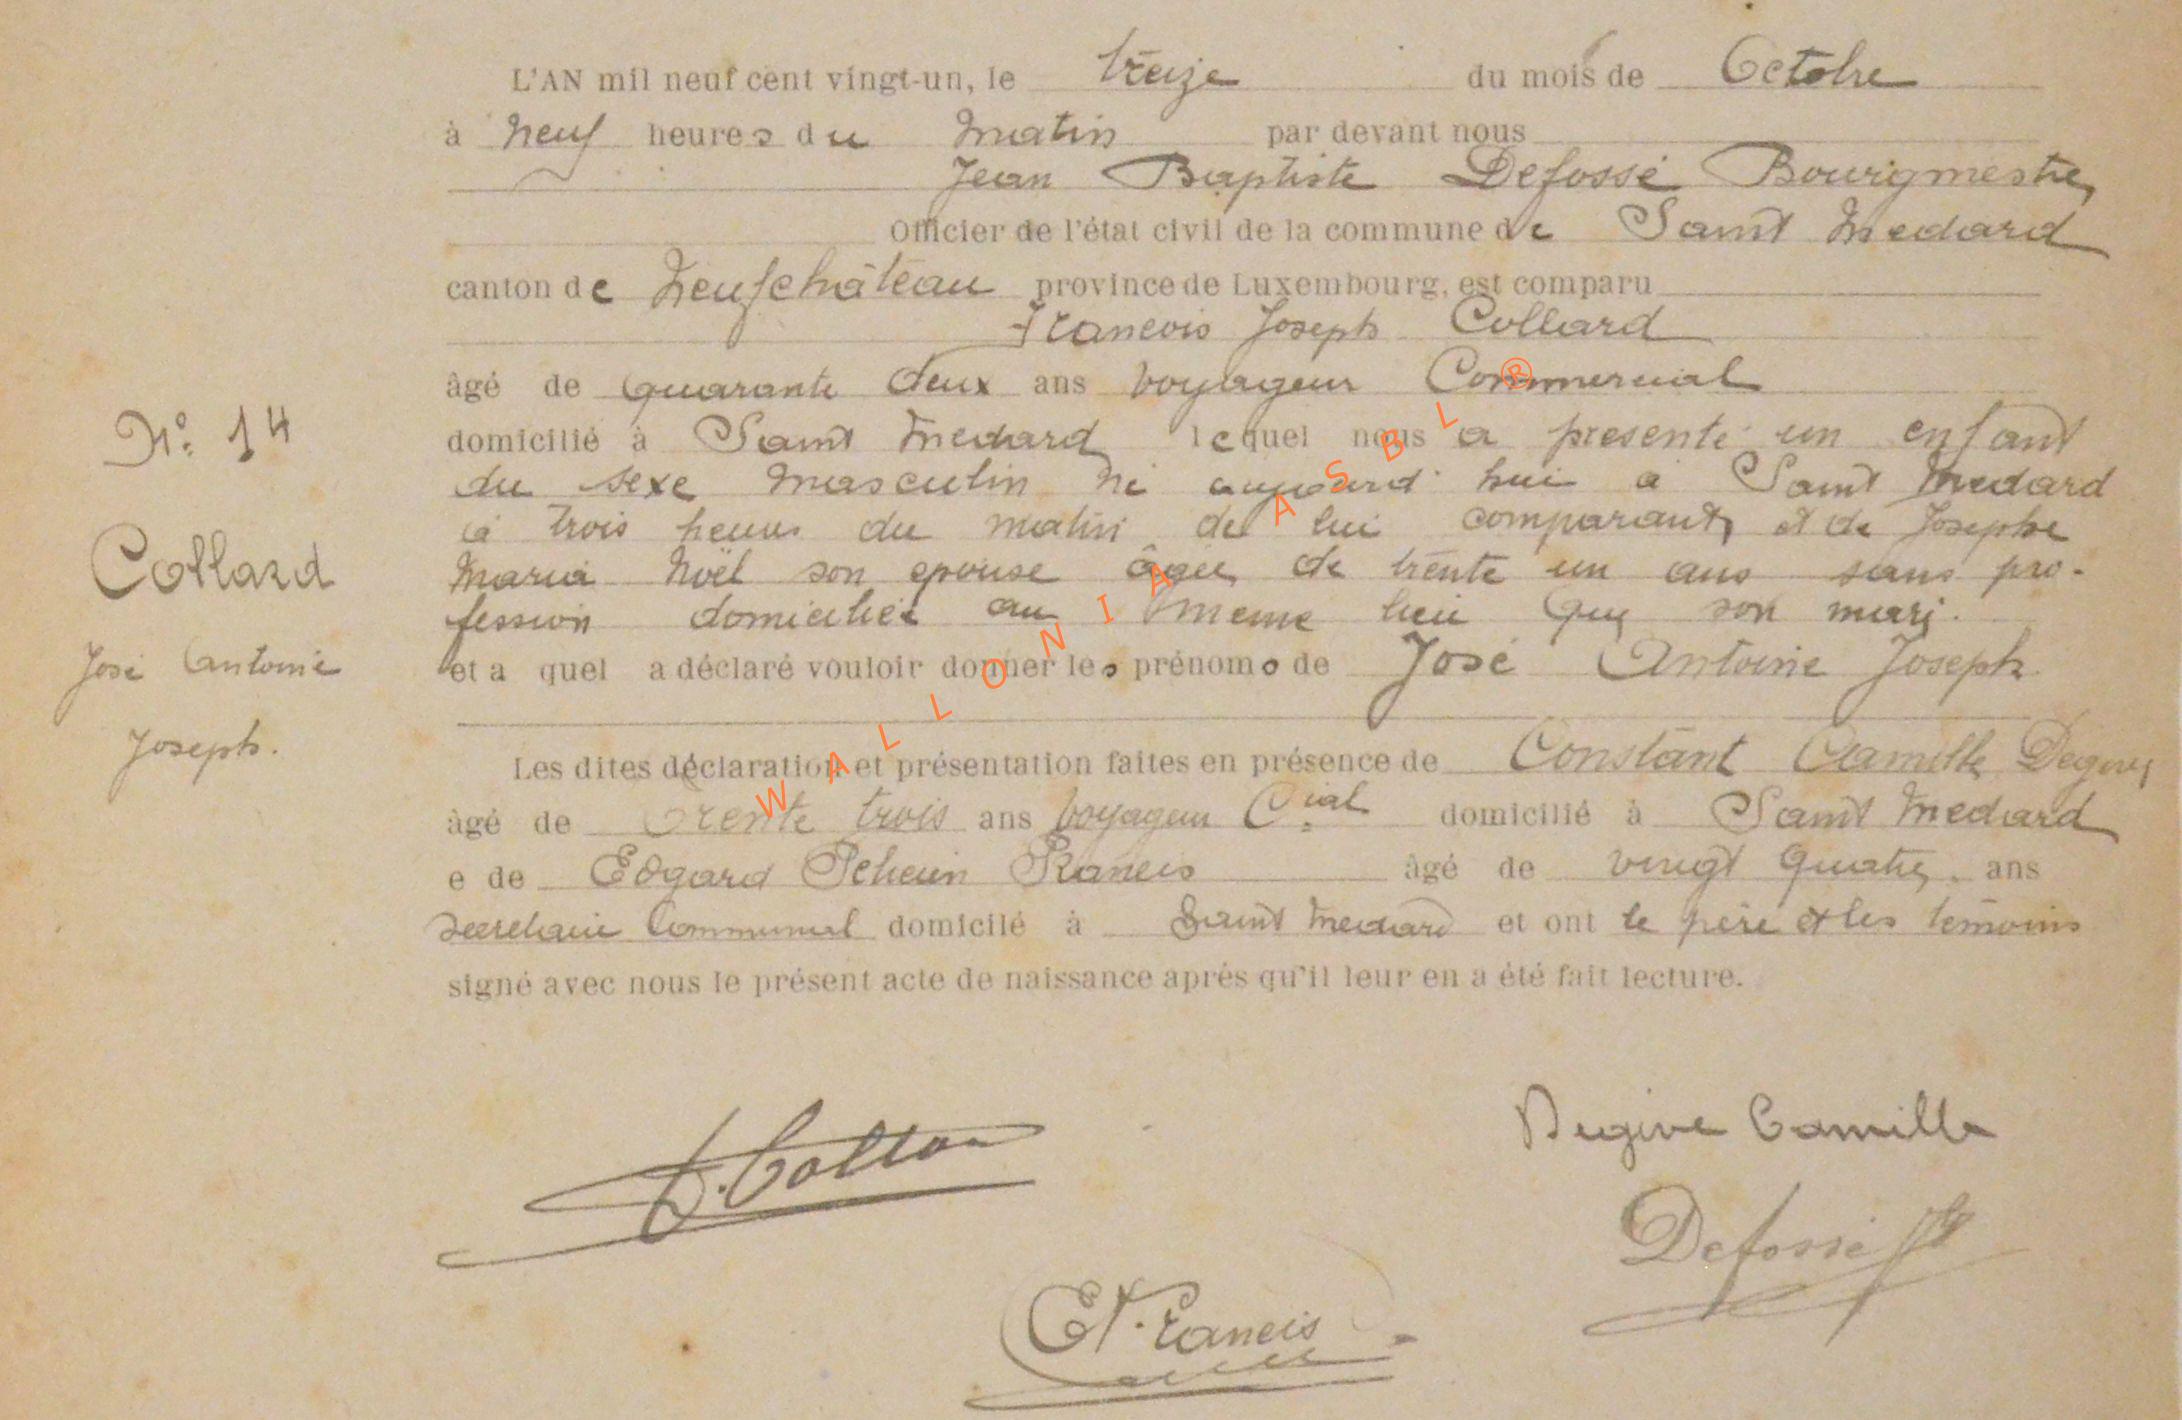 L'AN mil neuf cent vingt-un, le treize du mois de Octobre
à neuf heures du matin par devant nous
Jean Baptiste Defossé Bourgmestre,
Officier de l'état civil de la commune de Saint Medard
canton de Neufchâteau province de Luxembourg, est comparu
Francois Joseph Collard
âgé de quarante deux ans voyageur Commercial
domicilié à Saint Medard lequel nous a presenté un enfant
du sexe masculin né aujourd'hui à Saint Medard
à trois heures du matin de lui comparant, et de Josephe
Maria Noël son epouse âgée de trente un ans sans pro-
fession domiciliée au meme lieu que son mari.
et a quel a déclaré vouloir donner les prénoms de José Antoine Joseph
Les dites déclaration et présentation faites en présence de Constant Camille
âgé de Trente trois ans voyageur Cial domicilié à Saint Medard
e de Edgard Francis âgé de vingt quatre ans
secretaire Communal domicilé à Saint Medard et ont le père et les témoins
signé avec nous le présent acte de naissance après qu'il leur en a été fait lecture.
N° 14
Collard
José Antoine
Joseph.
WALLONIA ASBL ®
Camille
Defossé
E. Francis